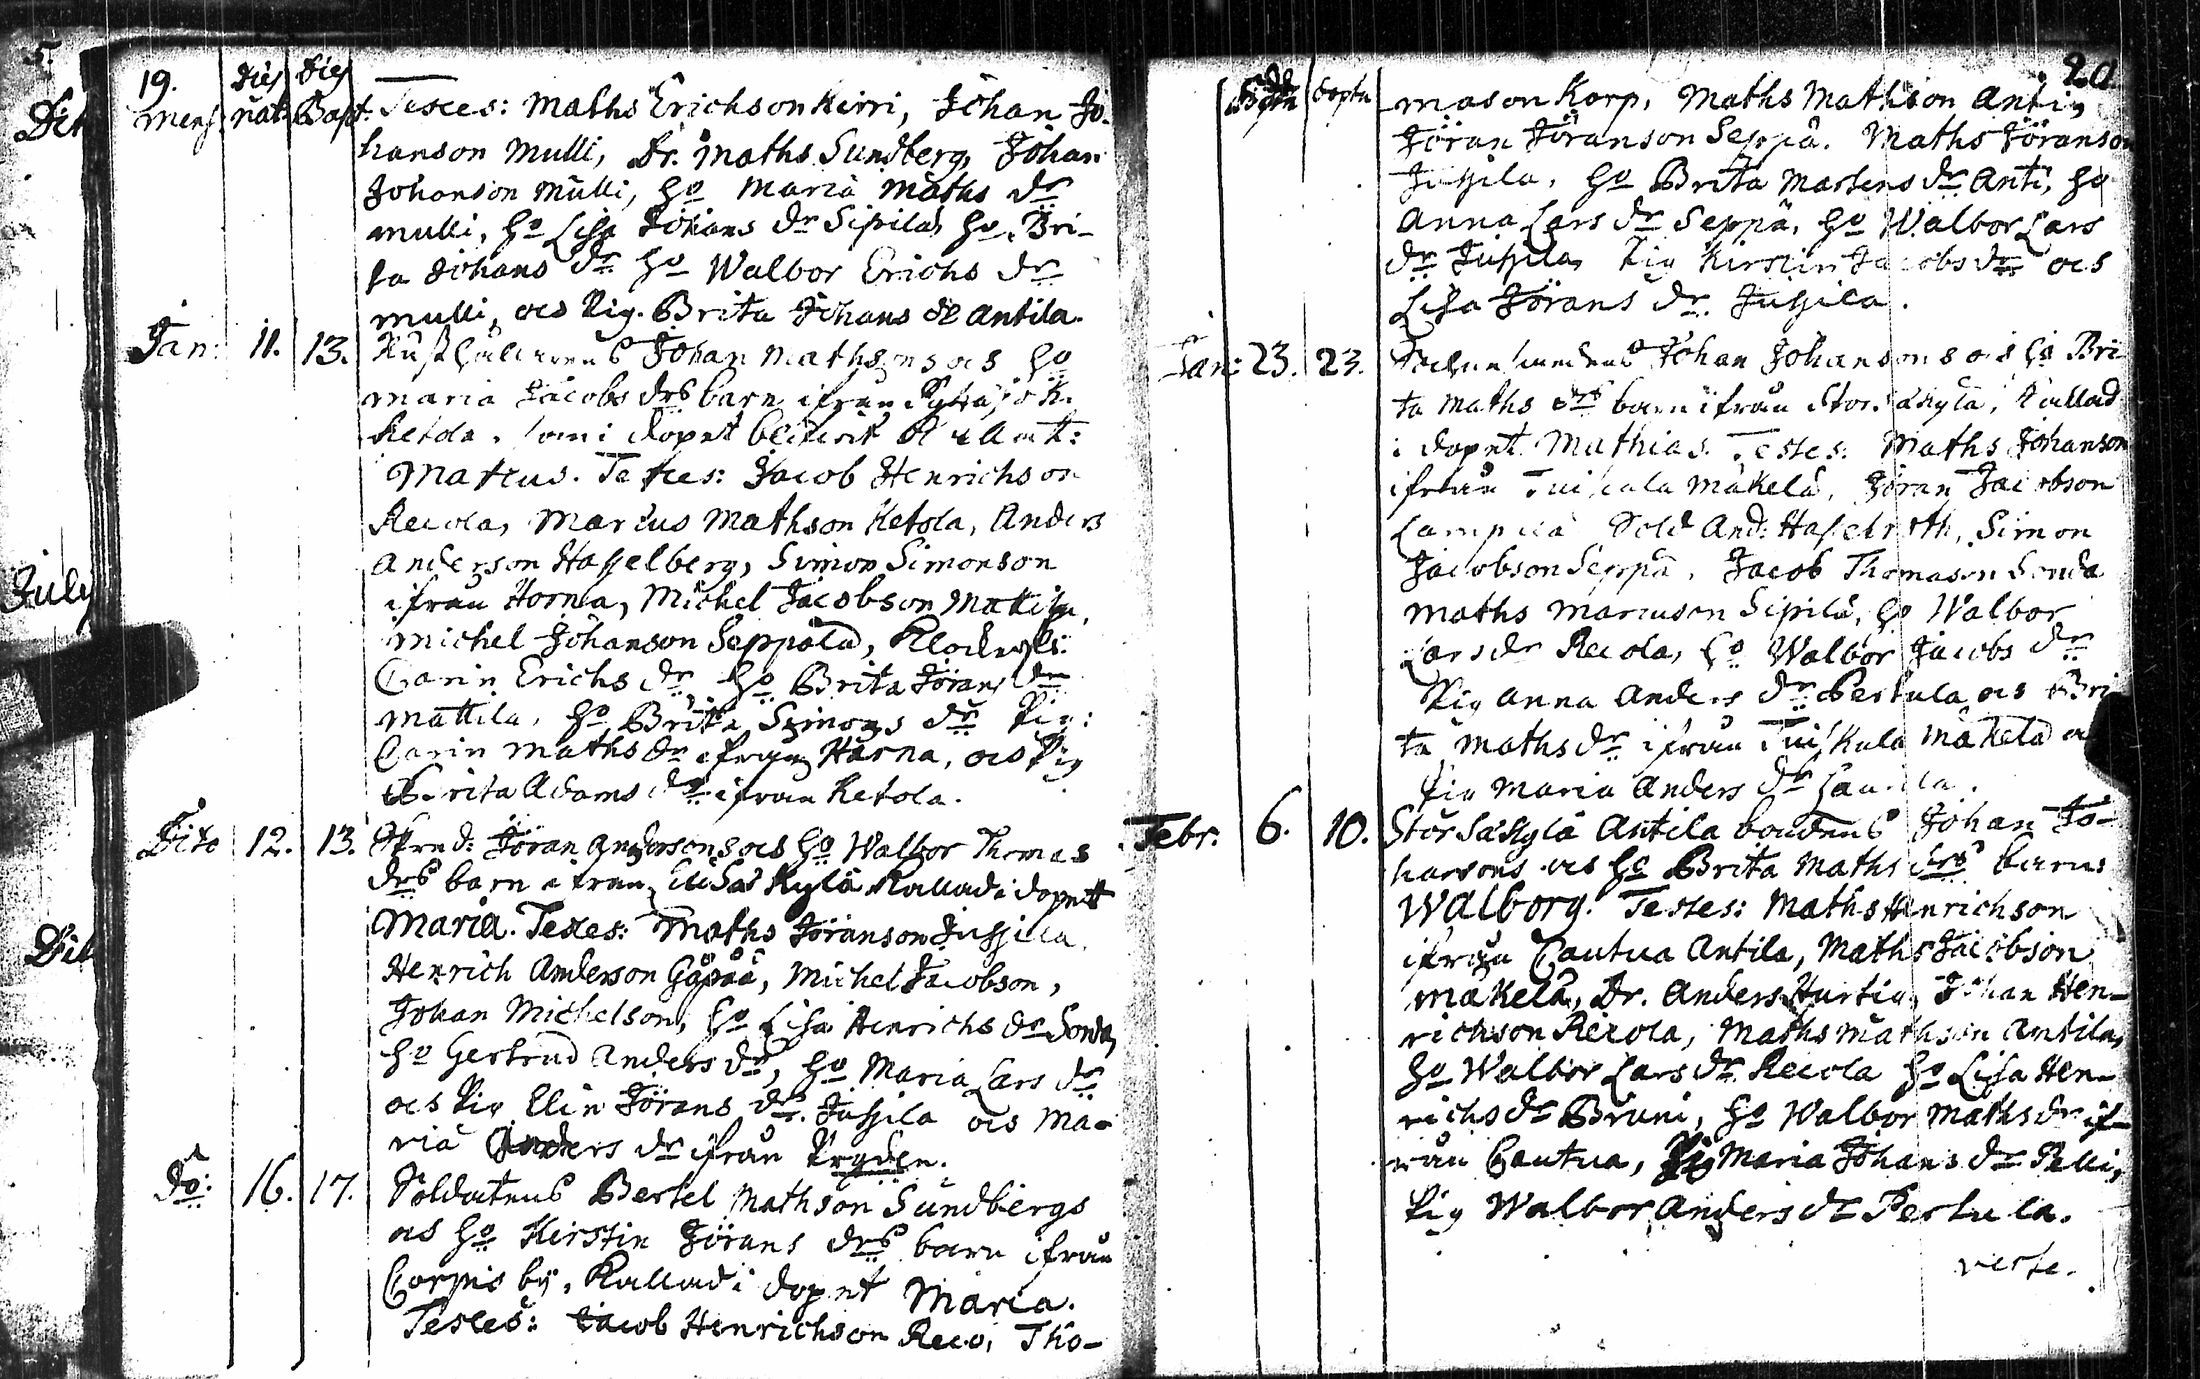 19.
Mens. | dies nat: | dies Bapt.
Testes: Maths Erichson Kirri, Johan Jo-
hanson Mulli, Dr. Maths Sundberg, Johan
Johanson Mulli, ho Maria Maths dr
Mulli, ho Lisa Johans dr Sipilä, ho Bri-
ta Johans dr ho Walbor Erichs dr
Mulli, ocs Pig. Brita Johans dr Antila.
Jan: 11. 13. Johan Mathsons ocs ho
Maria Jacobs drs barn ifrån
Ketola. som i dopet
Matths. Testes: Jacob Henrichson
Recola, Marcus Mathson Ketola, Anders
Anderson Hasselberg, Simon Simonson
ifrån Horna, Michel Jacobson Mattila,
Michel Johanson Seppälä,
Carin Erichs dr ho Brita Jörans dr
Mattila, ho Brita Simons dr Pig:
Carin Maths dr ifrån Harna, ocs Pig
Brita Adams dr ifrån Ketola.
Dito 12. 13. Jöran Andersons ocs ho Walbor Thomas
drs barn ifrån Kylä Kallad i dopet
Maria. Testes: Maths Jöranson Jussila,
Henrich Anderson Michel Jacobson,
Johan Michelson, ho Lisa Henrichs dr Sonda,
ho Gertrud Anders dr, ho Maria Lars dr
ocs Pig Elin Jörans dr. Jussila ocs Ma-
ria Anders dr ifrån
do: 16. 17. Soldatens Bertel Mathson Sundbergs
ocs ho Kirstin Jörans drs barn ifrån
Corpis by, Kallad i dopet Maria.
Testes: Jacob Henrichson Reco, Tho-
20.
mason Korp, Maths Mathson Anti,
Jöran Jöranson Seppä. Maths Jöranson
Jussila, ho Brita Martens dr Anti, ho
Anna Lars dr Seppä, ho Walbor Lars
dr Jussila, Pig Kirstin Jacobs dr ocs
Lisa Jörans dr Jussila.
Jan: 23. 23. Johan Johansons ocs ho Bri
ta Maths drs barn ifrån Kallad
i dopet Mathias. Testes: Maths Johanson
ifrån Tuiscula Mäkelä, Jöran Jacobson
Sold And: Hasselroth, Simon
Jacobson Seppä, Jacob Thomason Sonda
Maths Marcuson Sipilä, ho Walbor
Lars dr Recola, ho Walbor Jacobs dr
Pig Anna Anders dr Pertula ocs Bri
ta Maths dr ifrån Tuiskula Mäkelä
Pig Maria Anders dr
Febr. 6. 10. Stor Säkylä Antila bondens Johan Jo-
hansons ocs ho Brita Maths drs barns
Walborg. Testes: Maths Henrichson
ifrån Cautua Antila, Maths Jacobson
Mäkelä, Dr. Anders Hurtig, Johan Hen-
richson Recola, Maths Mathson Antila,
ho Walbor Lars dr Recola ho Lisa Hen-
richs dr Bruni, ho Walbor Maths dr if-
rån Cautua, Pig Maria Johans dr Pelli,
Pig Walbor Anders dr Pertula.
verte.
July